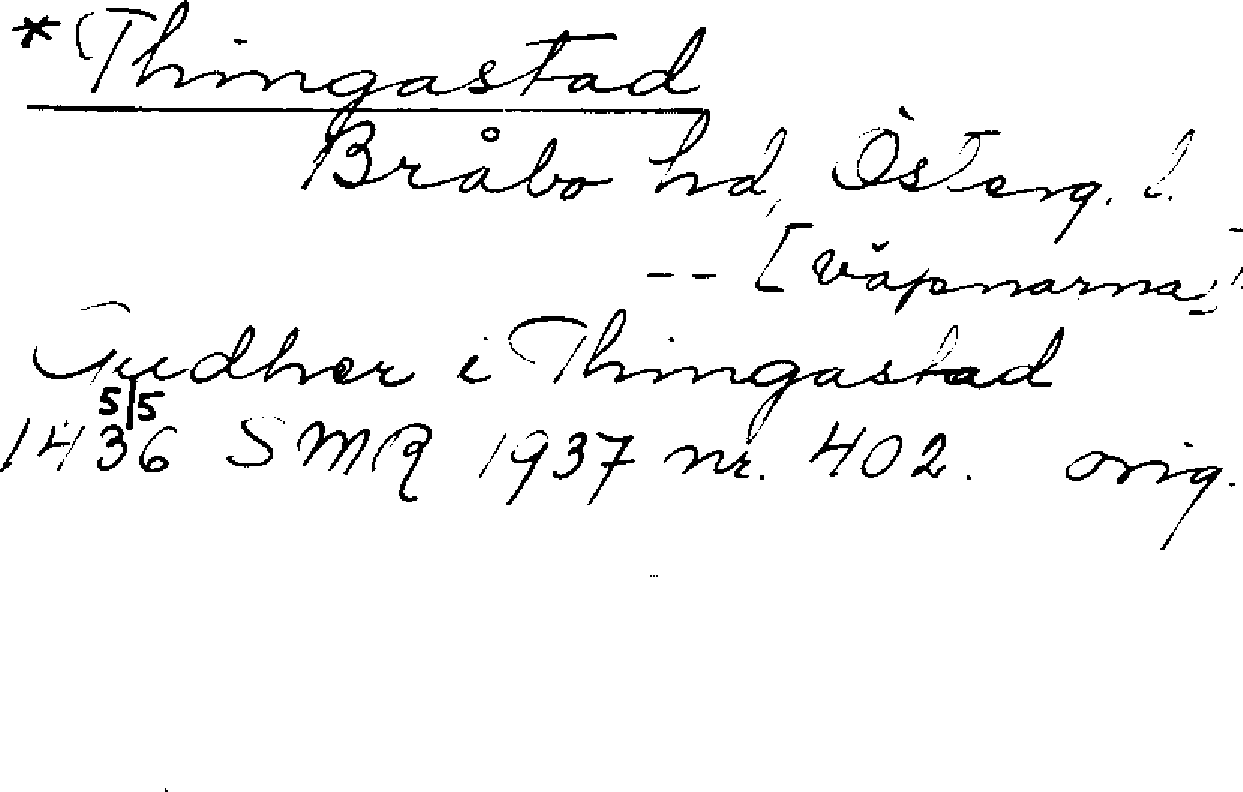 *Thingastad
Bråbo hd, Österg. l.
-- [väpnarna]
Gudher i Thingastad
5/5
1436 SMR 1937 nr. 402. orig.